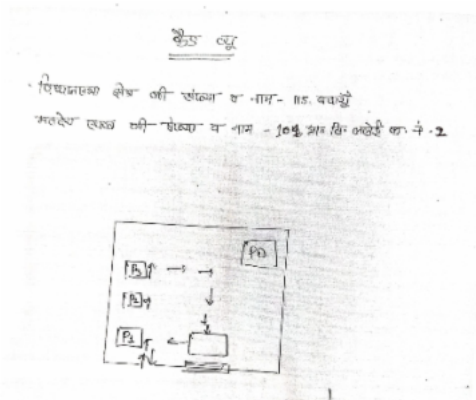 कैड व्यू
विधानसभा क्षेत्र की संख्या व नाम - 115.
मतदेय स्थल की संख्या व नाम - 104 प्रा० वि० क. नं. - 2
PO
P3
P2
P1